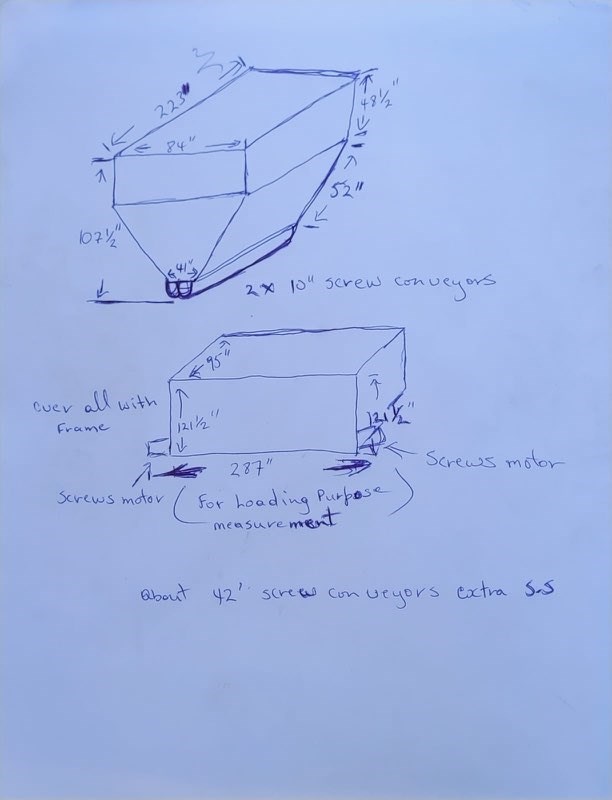 223"
84"
48 1/2"
52"
107 1/2"
41"
2 x 10" screw conveyors
95"
over all with
Frame
121 1/2"
121 1/2"
287"
Screws motor
Screws motor
(For Loading Purpose
measurement)
about 42' screw conveyors extra S.S